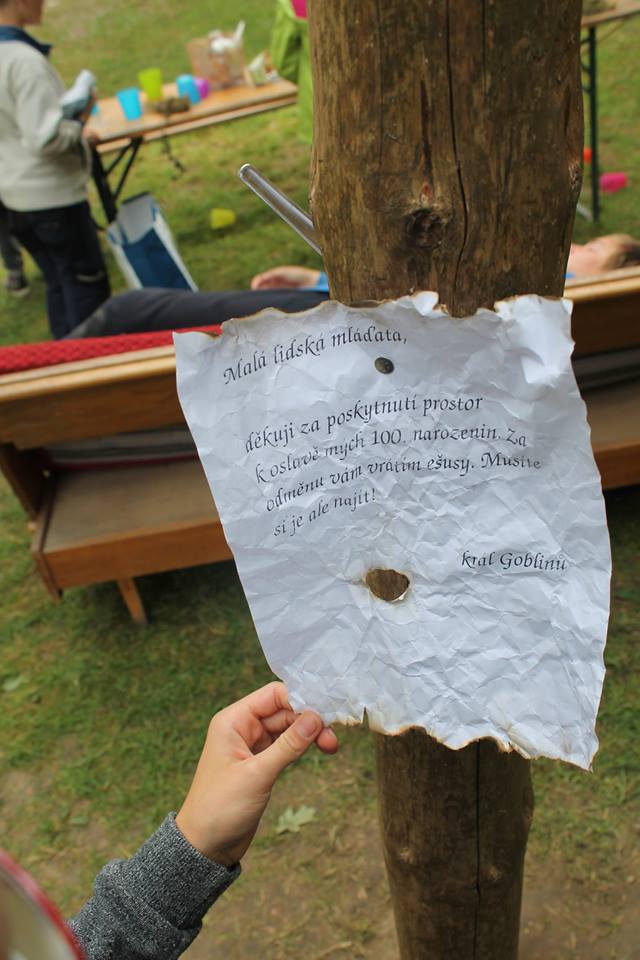 Malá lidská mláďata,
děkuji za poskytnutí prostor
k oslavě mých 100. narozenin. Za
odměnu vám vrátím ešusy. Musíte
si je ale najít!
král Goblinů